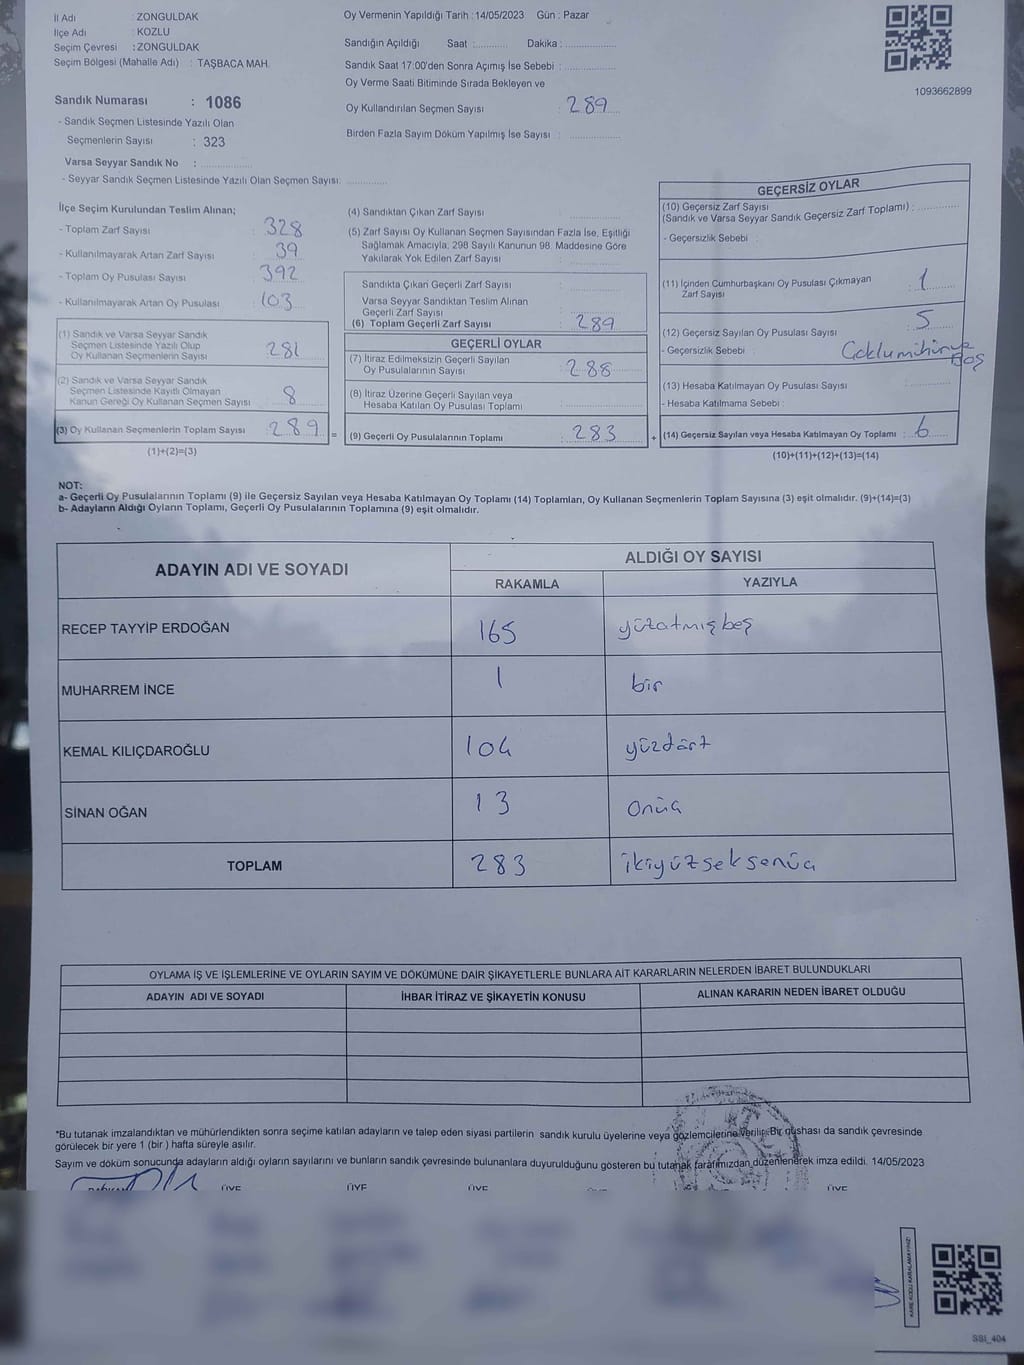 İl Adı : ZONGULDAK
İlçe Adı : KOZLU
Seçim Çevresi : ZONGULDAK
Seçim Bölgesi (Mahalle Adı) : TAŞBACA MAH.
Sandık Numarası : 1086
- Sandık Seçmen Listesinde Yazılı Olan
Seçmenlerin Sayısı : 323
Varsa Seyyar Sandık No :
- Seyyar Sandık Seçmen Listesinde Yazılı Olan Seçmen Sayısı:
Oy Vermenin Yapıldığı Tarih : 14/05/2023 Gün : Pazar
Sandığın Açıldığı Saat : Dakika :
Sandık Saat 17:00'den Sonra Açımış İse Sebebi :
Oy Verme Saati Bitiminde Sırada Bekleyen ve
Oy Kullandırılan Seçmen Sayısı : 289
Birden Fazla Sayım Döküm Yapılmış İse Sayısı :
1093662899
İlçe Seçim Kurulundan Teslim Alınan;
- Toplam Zarf Sayısı : 328
- Kullanılmayarak Artan Zarf Sayısı : 39
- Toplam Oy Pusulası Sayısı : 392
- Kullanılmayarak Artan Oy Pusulası : 103
(1) Sandık ve Varsa Seyyar Sandık
Seçmen Listesinde Yazılı Olup
Oy Kullanan Seçmenlerin Sayısı : 281
(2) Sandık ve Varsa Seyyar Sandık
Seçmen Listesinde Kayıtlı Olmayan
Kanun Gereği Oy Kullanan Seçmen Sayısı : 8
(3) Oy Kullanan Seçmenlerin Toplam Sayısı : 289 =
(1)+(2)=(3)
(4) Sandıktan Çıkan Zarf Sayısı :
(5) Zarf Sayısı Oy Kullanan Seçmen Sayısından Fazla İse, Eşitliği
Sağlamak Amacıyla, 298 Sayılı Kanunun 98. Maddesine Göre
Yakılarak Yok Edilen Zarf Sayısı :
Sandıkta Çıkan Geçerli Zarf Sayısı :
Varsa Seyyar Sandıktan Teslim Alınan
Geçerli Zarf Sayısı :
(6) Toplam Geçerli Zarf Sayısı : 289
GEÇERLİ OYLAR
(7) İtiraz Edilmeksizin Geçerli Sayılan
Oy Pusulalarının Sayısı : 288
(8) İtiraz Üzerine Geçerli Sayılan veya
Hesaba Katılan Oy Pusulası Toplamı :
(9) Geçerli Oy Pusulalarının Toplamı : 283 +
GEÇERSİZ OYLAR
(10) Geçersiz Zarf Sayısı
(Sandık ve Varsa Seyyar Sandık Geçersiz Zarf Toplamı) :
- Geçersizlik Sebebi :
(11) İçinden Cumhurbaşkanı Oy Pusulası Çıkmayan
Zarf Sayısı : 1
(12) Geçersiz Sayılan Oy Pusulası Sayısı : 5
- Geçersizlik Sebebi :
Boş
(13) Hesaba Katılmayan Oy Pusulası Sayısı :
- Hesaba Katılmama Sebebi :
(14) Geçersiz Sayılan veya Hesaba Katılmayan Oy Toplamı : 6
(10)+(11)+(12)+(13)=(14)
NOT:
a- Geçerli Oy Pusulalarının Toplamı (9) ile Geçersiz Sayılan veya Hesaba Katılmayan Oy Toplamı (14) Toplamları, Oy Kullanan Seçmenlerin Toplam Sayısına (3) eşit olmalıdır. (9)+(14)=(3)
b- Adayların Aldığı Oyların Toplamı, Geçerli Oy Pusulalarının Toplamına (9) eşit olmalıdır.
ADAYIN ADI VE SOYADI
ALDIĞI OY SAYISI
RAKAMLA YAZIYLA
RECEP TAYYİP ERDOĞAN 165 yüzatmışbeş
MUHARREM İNCE 1 bir
KEMAL KILIÇDAROĞLU 104 yüzdört
SİNAN OĞAN 13 onüç
TOPLAM 283 ikiyüzseksenüç
OYLAMA İŞ VE İŞLEMLERİNE VE OYLARIN SAYIM VE DÖKÜMÜNE DAİR ŞİKAYETLERLE BUNLARA AİT KARARLARIN NELERDEN İBARET BULUNDUKLARI
ADAYIN ADI VE SOYADI İHBAR İTİRAZ VE ŞİKAYETİN KONUSU ALINAN KARARIN NEDEN İBARET OLDUĞU
*Bu tutanak imzalandıktan ve mühürlendikten sonra seçime katılan adayların ve talep eden siyasi partilerin sandık kurulu üyelerine veya gözlemcilerine verilip, Bir nüshası da sandık çevresinde
görülecek bir yere 1 (bir ) hafta süreyle asılır.
Sayım ve döküm sonucunda adayların aldığı oyların sayılarını ve bunların sandık çevresinde bulunanlara duyurulduğunu gösteren bu tutanak tarafımızdan düzenlenerek imza edildi. 14/05/2023
ÜYE ÜYE ÜYE ÜYE
KARE KODU KARALAMAYINIZ!
SSI_404